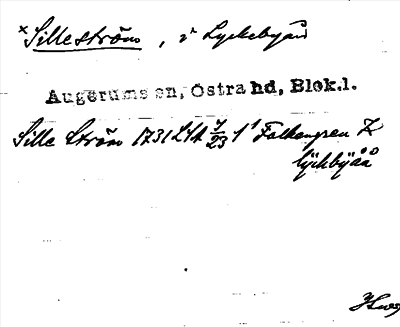 ×Silleström, i Lyckebyån
Augerums sn, Östra hd, Blek.l.
Sille Ström 1731 LSA 7/23 f¹ Falkengren Z
lÿckbÿåå